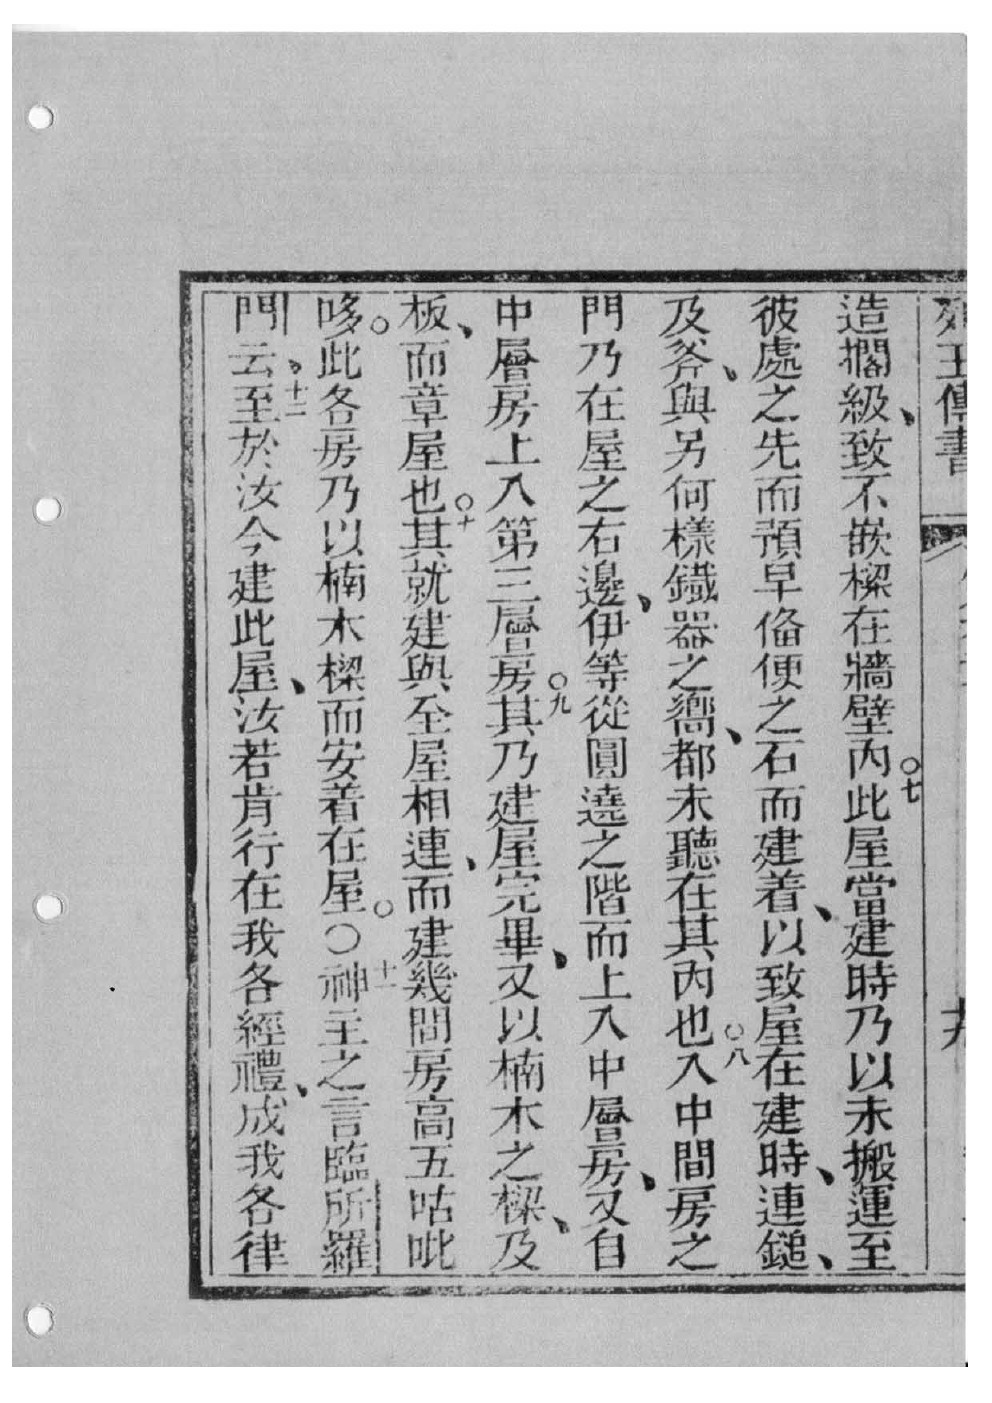 列王傳書
造擱級、致不嵌樑在牆壁內○七此屋當建時乃以未搬運至
彼處之先而預早俻便之石而建着、以致屋在建時、連鎚、
及斧、與另何樣鐵器之嚮、都未聽在其內也○八入中間房之
門乃在屋之右邊、伊等從圓遶之階而上入中層房、又自
中層房上入第三層房○九其乃建屋完畢、又以楠木之樑、及
板、而章屋也○十其就建與至屋相連、而建幾間房高五咕呲
哆○此各房乃以楠木樑而安着在屋○○十一神主之言臨所羅
門云、十二至於汝今建此屋、汝若肯行在我各經禮、成我各律